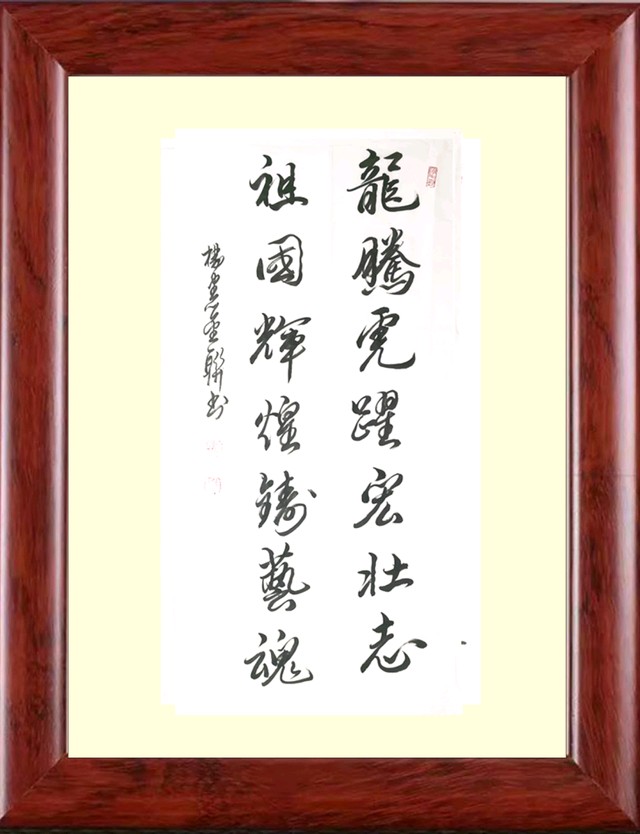 龍騰虎躍宏壯志
祖國輝煌鑄藝魂
楊書